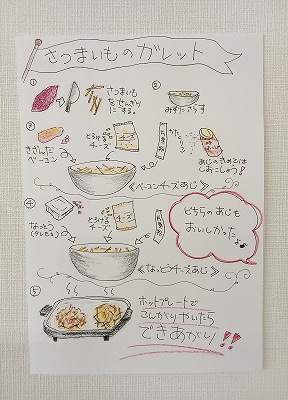 さつまいものガレット
① さつまいも
をせんぎり
にする。
② みずにさらす
③ とろける
チーズ
チーズ
かたくりこ
きざんだ
ベーコン
あじのきめては
しおこしょう!
≪ベーコンチーズあじ≫
④ とろける
チーズ
チーズ
なっとう
(タレも)
≪なっとうチーズあじ≫
どちらのあじも
おいしかったよ
⑤ ホットプレートで
こんがりやいたら
できあがり!!